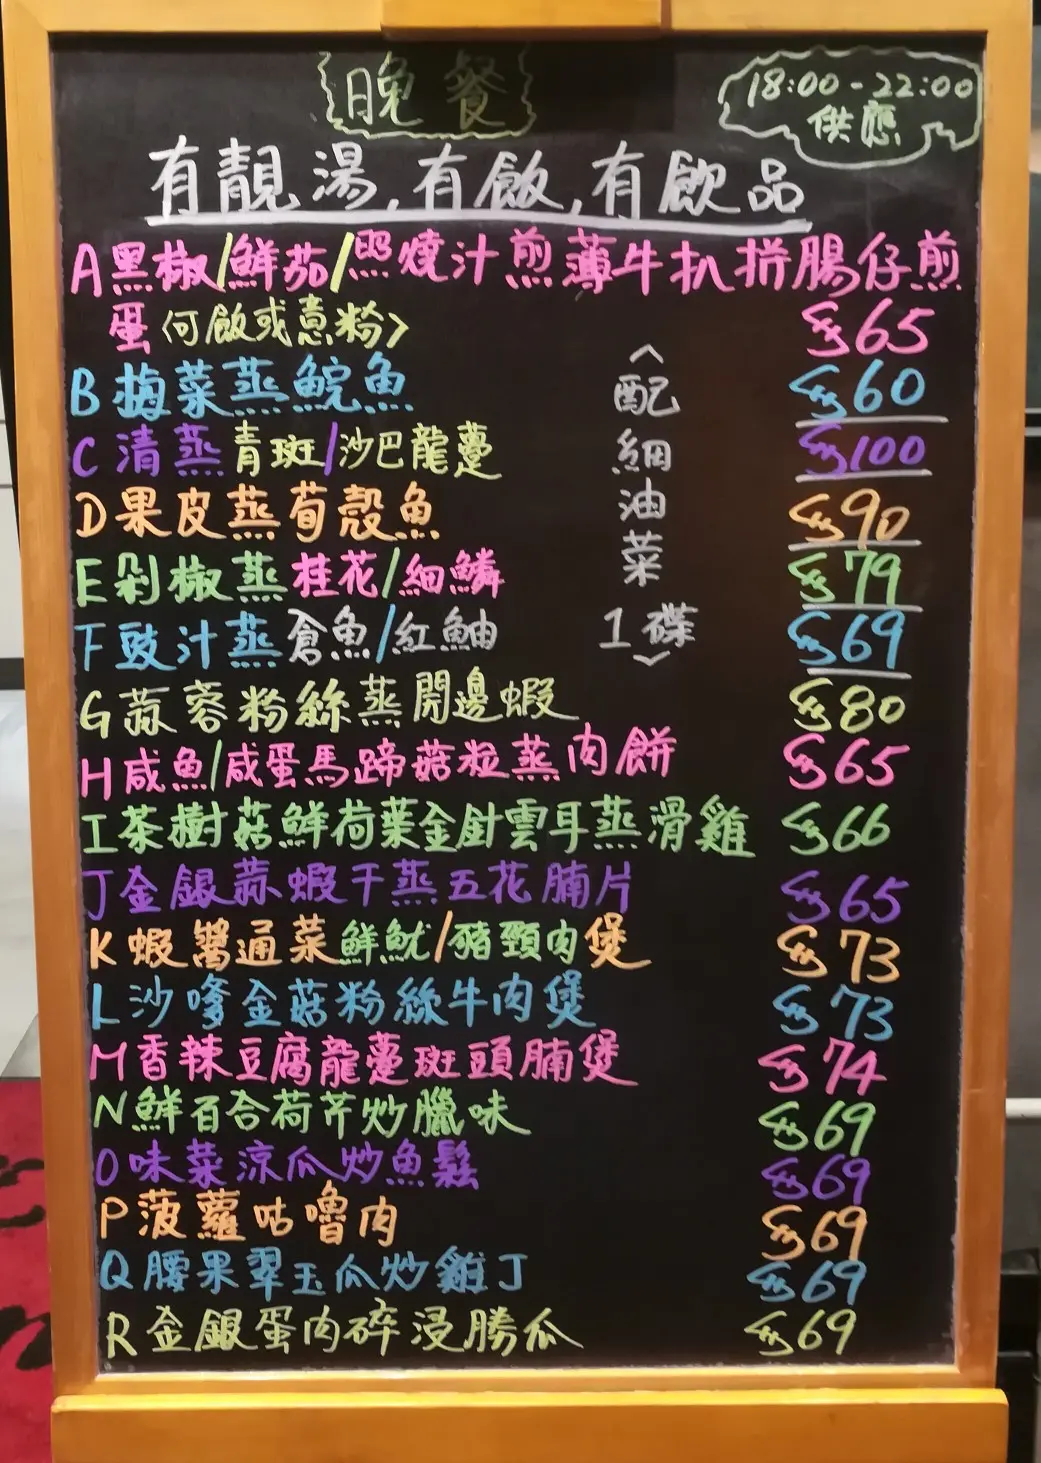 晚餐
18:00-22:00
供應
有靚湯,有飯,有飲品
A黑椒/鮮茄/照燒汁煎薄牛扒拼腸仔煎
蛋〈何飯或意粉〉 $65
B梅菜蒸鯇魚 $60
C清蒸青斑/沙巴龍躉 $100
D果皮蒸荀殼魚 $90
E剁椒蒸桂花/細鱗 $79
F豉汁蒸倉魚/紅鮋 $69
〈配細油菜1碟〉
G蒜蓉粉絲蒸開邊蝦 $80
H咸魚/咸蛋馬蹄菇粒蒸肉餅 $65
I茶樹菇鮮荷葉金針雲耳蒸滑雞 $66
J金銀蒜蝦干蒸五花腩片 $65
K蝦醬通菜鮮魷/豬頸肉煲 $73
L沙嗲金菇粉絲牛肉煲 $73
M香辣豆腐龍躉斑頭腩煲 $74
N鮮百合荷芹炒臘味 $69
O味菜涼瓜炒魚鬆 $69
P菠蘿咕嚕肉 $69
Q腰果翠玉瓜炒雞丁 $69
R金銀蛋肉碎浸勝瓜 $69